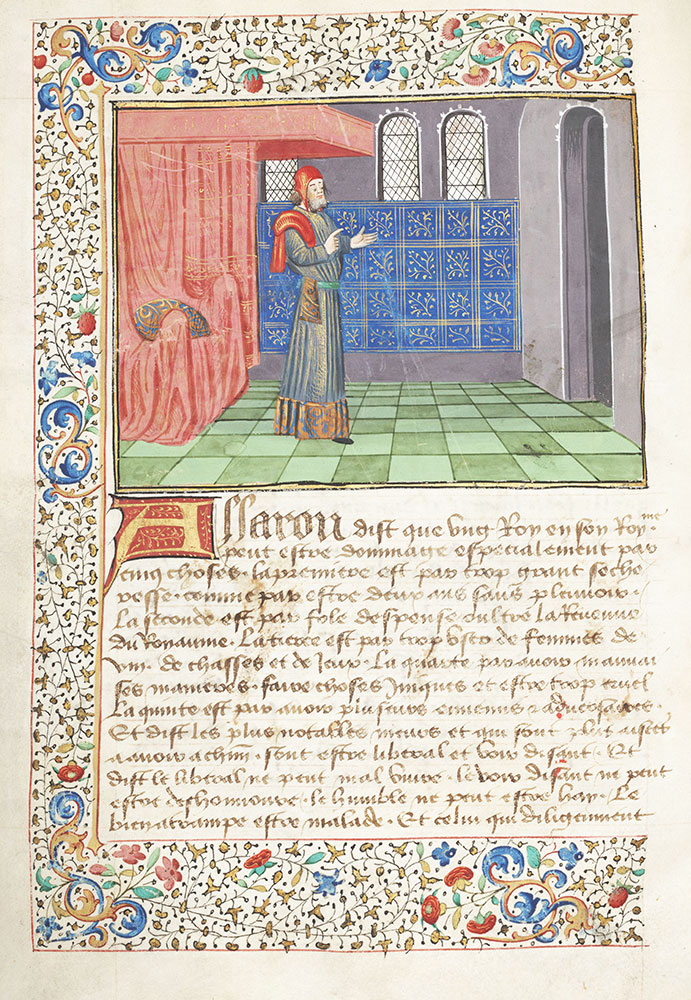 Assaron dist que ung Roy en son Roy.me
peut estre dommage especialement par
cinq choses. la premiere est par trop grant seche
resse. comme par estre deux ans sans pleuvoir.
La seconde est par fole despense oultre la Revenue
du Royaume. La tierce est par trop user de femmes de
vin. de chasses et de Jeux. La quarte par avoir mauvai
ses manieres. faire choses Iniques et estre trop cruel
La quinte est par avoir plusieurs ennemis & adversaires.
Et dist les plus notables meurs et qui sont plus
a avoir a chun. sont estre liberal et voir disant. Et
dist le liberal ne peut mal vivre. le voir disant ne peut
estre deshonnoure. le humble ne peut estre hay. Le
bien actrampe estre malade. Et celui qui diligemment